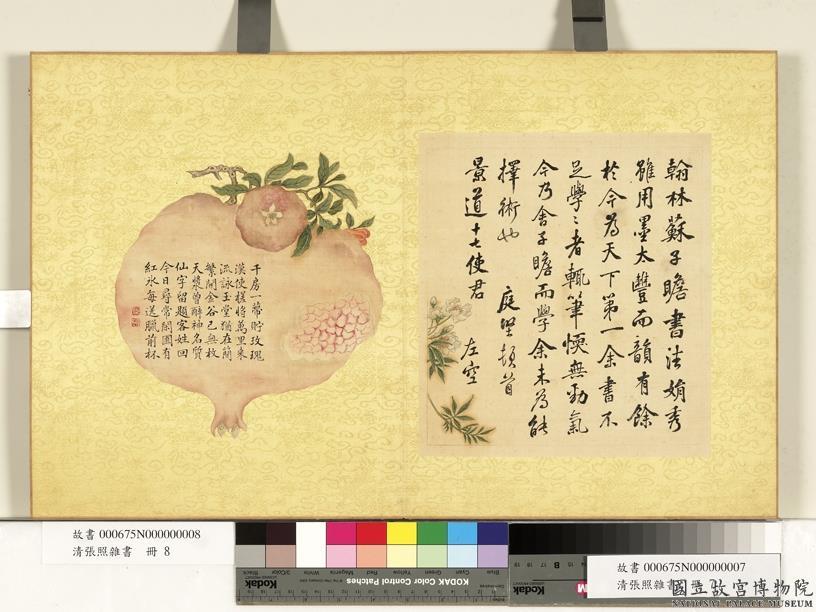 翰林蘇子瞻書法娟秀
雖用墨太豐而韻有餘
於今為天下第一余書不
足學〻者輒筆愞無勁氣
今乃舍子瞻而學余未為能
擇術也
庭堅頓首
景道十七使君
左空
千房一蒂貯玫瑰
漢使槎將萬里來
流詠玉堂猶在簡
繁開金谷已無枚
天漿曾醉神名質
仙字留題客姓回
今日尋常閒圃有
紅氷每送臘前杯
故書 000675N000000008
清張照雜書 冊 8
故書 000675N000000007
清張照雜書
國立故宮博物院
NATIONAL PALACE MUSEUM
KODAK Color Control Patches
Black
3/Color
White
Magenta
Red
Yellow
Green
Cyan
Blue